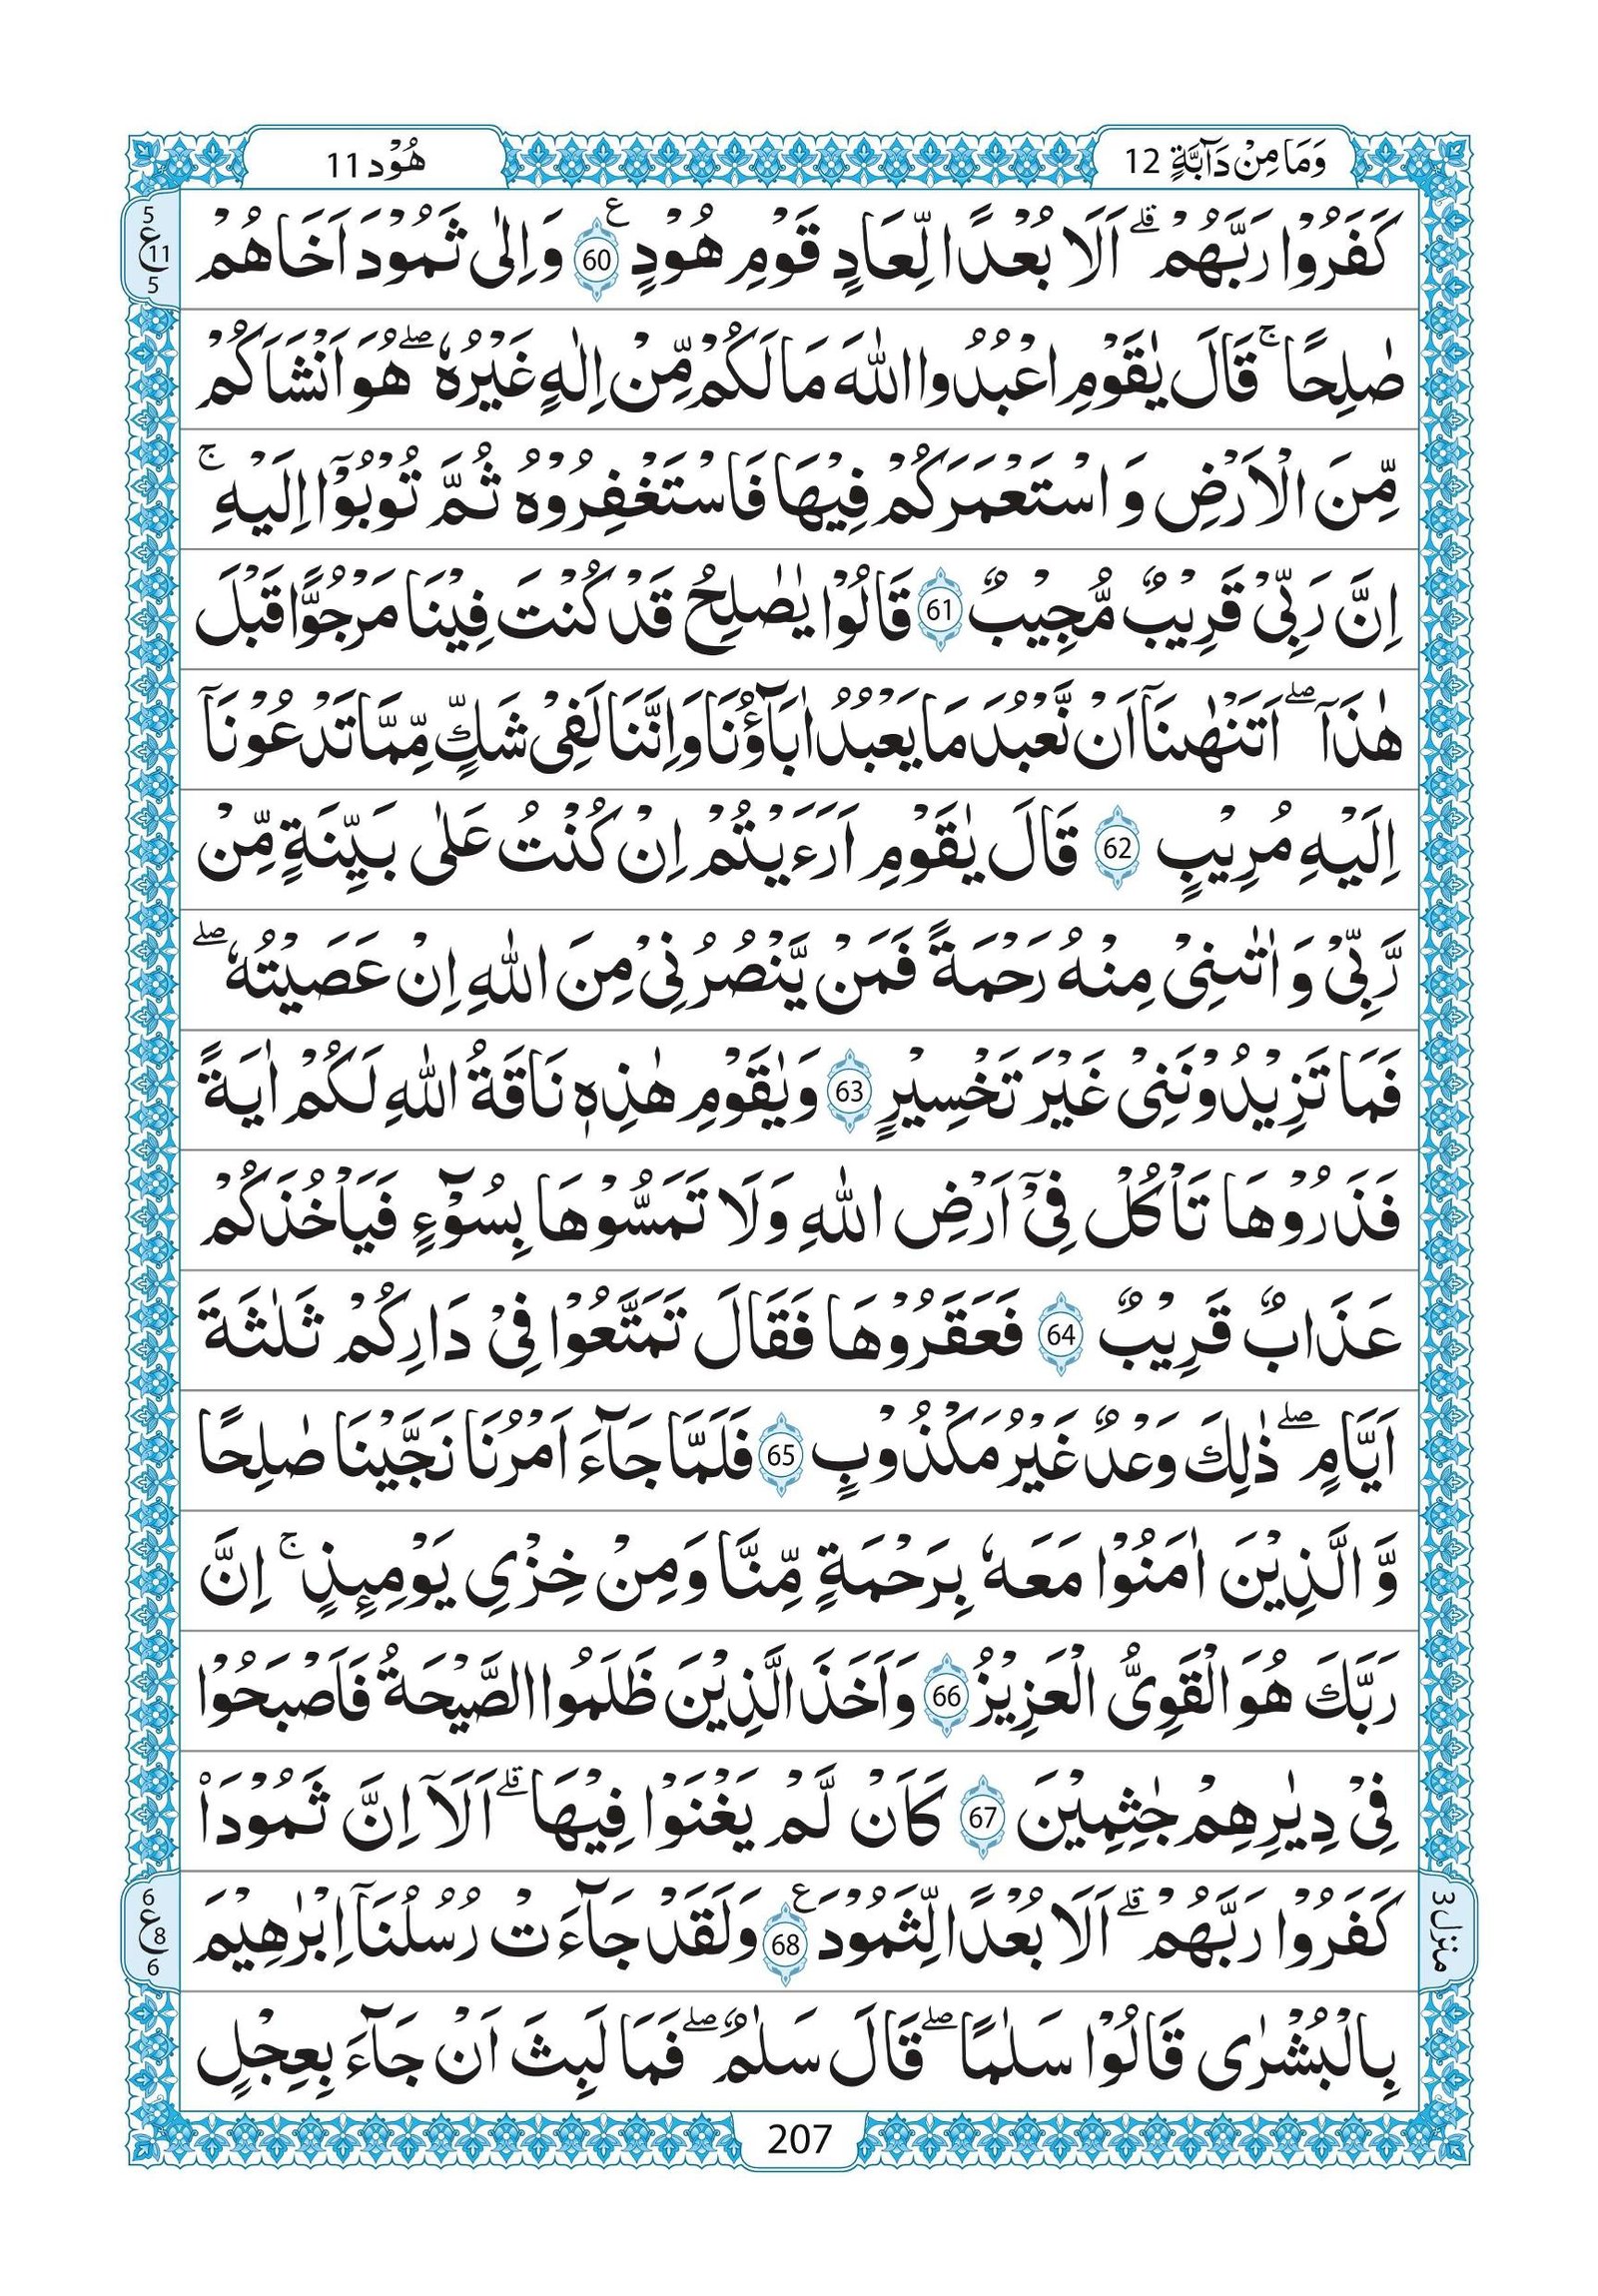 وَمَا مِنْ دَآبَّةٍ 12
هُوْد 11
كَفَرُوْا رَبَّهُمْ ؕ اَلَا بُعْدًا لِّعَادٍ قَوْمِ هُوْدٍ 60 ع وَاِلٰى ثَمُوْدَ اَخَاهُمْ
5
ع 11
5
صٰلِحًا ۚ قَالَ يٰقَوْمِ اعْبُدُوا اللّٰهَ مَا لَكُمْ مِّنْ اِلٰهٍ غَيْرُهٗ ۖ هُوَ اَنْشَاَكُمْ
مِّنَ الْاَرْضِ وَ اسْتَعْمَرَكُمْ فِيْهَا فَاسْتَغْفِرُوْهُ ثُمَّ تُوْبُوْٓا اِلَيْهِ ۚ
اِنَّ رَبِّىْ قَرِيْبٌ مُّجِيْبٌ 61 قَالُوْا يٰصٰلِحُ قَدْ كُنْتَ فِيْنَا مَرْجُوًّا قَبْلَ
هٰذَآ ۖ اَتَنْهٰىنَآ اَنْ نَّعْبُدَ مَا يَعْبُدُ اٰبَآؤُنَا وَاِنَّنَا لَفِىْ شَكٍّ مِّمَّا تَدْعُوْنَآ
اِلَيْهِ مُرِيْبٍ 62 قَالَ يٰقَوْمِ اَرَءَيْتُمْ اِنْ كُنْتُ عَلٰى بَيِّنَةٍ مِّنْ
رَّبِّىْ وَ اٰتٰىنِىْ مِنْهُ رَحْمَةً فَمَنْ يَّنْصُرُنِىْ مِنَ اللّٰهِ اِنْ عَصَيْتُهٗ ۖ
فَمَا تَزِيْدُوْنَنِىْ غَيْرَ تَخْسِيْرٍ 63 وَيٰقَوْمِ هٰذِهٖ نَاقَةُ اللّٰهِ لَكُمْ اٰيَةً
فَذَرُوْهَا تَاْكُلْ فِىْٓ اَرْضِ اللّٰهِ وَلَا تَمَسُّوْهَا بِسُوْٓءٍ فَيَاْخُذَكُمْ
عَذَابٌ قَرِيْبٌ 64 فَعَقَرُوْهَا فَقَالَ تَمَتَّعُوْا فِىْ دَارِكُمْ ثَلٰثَةَ
اَيَّامٍ ۖ ذٰلِكَ وَعْدٌ غَيْرُ مَكْذُوْبٍ 65 فَلَمَّا جَآءَ اَمْرُنَا نَجَّيْنَا صٰلِحًا
وَّ الَّذِيْنَ اٰمَنُوْا مَعَهٗ بِرَحْمَةٍ مِّنَّا وَمِنْ خِزْىِ يَوْمِئِذٍ ۚ اِنَّ
رَبَّكَ هُوَ الْقَوِىُّ الْعَزِيْزُ 66 وَاَخَذَ الَّذِيْنَ ظَلَمُوا الصَّيْحَةُ فَاَصْبَحُوْا
فِىْ دِيٰرِهِمْ جٰثِمِيْنَ 67 كَاَنْ لَّمْ يَغْنَوْا فِيْهَا ۗ اَلَآ اِنَّ ثَمُوْدَا۟
كَفَرُوْا رَبَّهُمْ ۗ اَلَا بُعْدًا لِّثَمُوْدَ 68 ع وَلَقَدْ جَآءَتْ رُسُلُنَآ اِبْرٰهِيْمَ
6
ع 8
6
منزل 3
بِالْبُشْرٰى قَالُوْا سَلٰمًا ۖ قَالَ سَلٰمٌ ۖ فَمَا لَبِثَ اَنْ جَآءَ بِعِجْلٍ
207